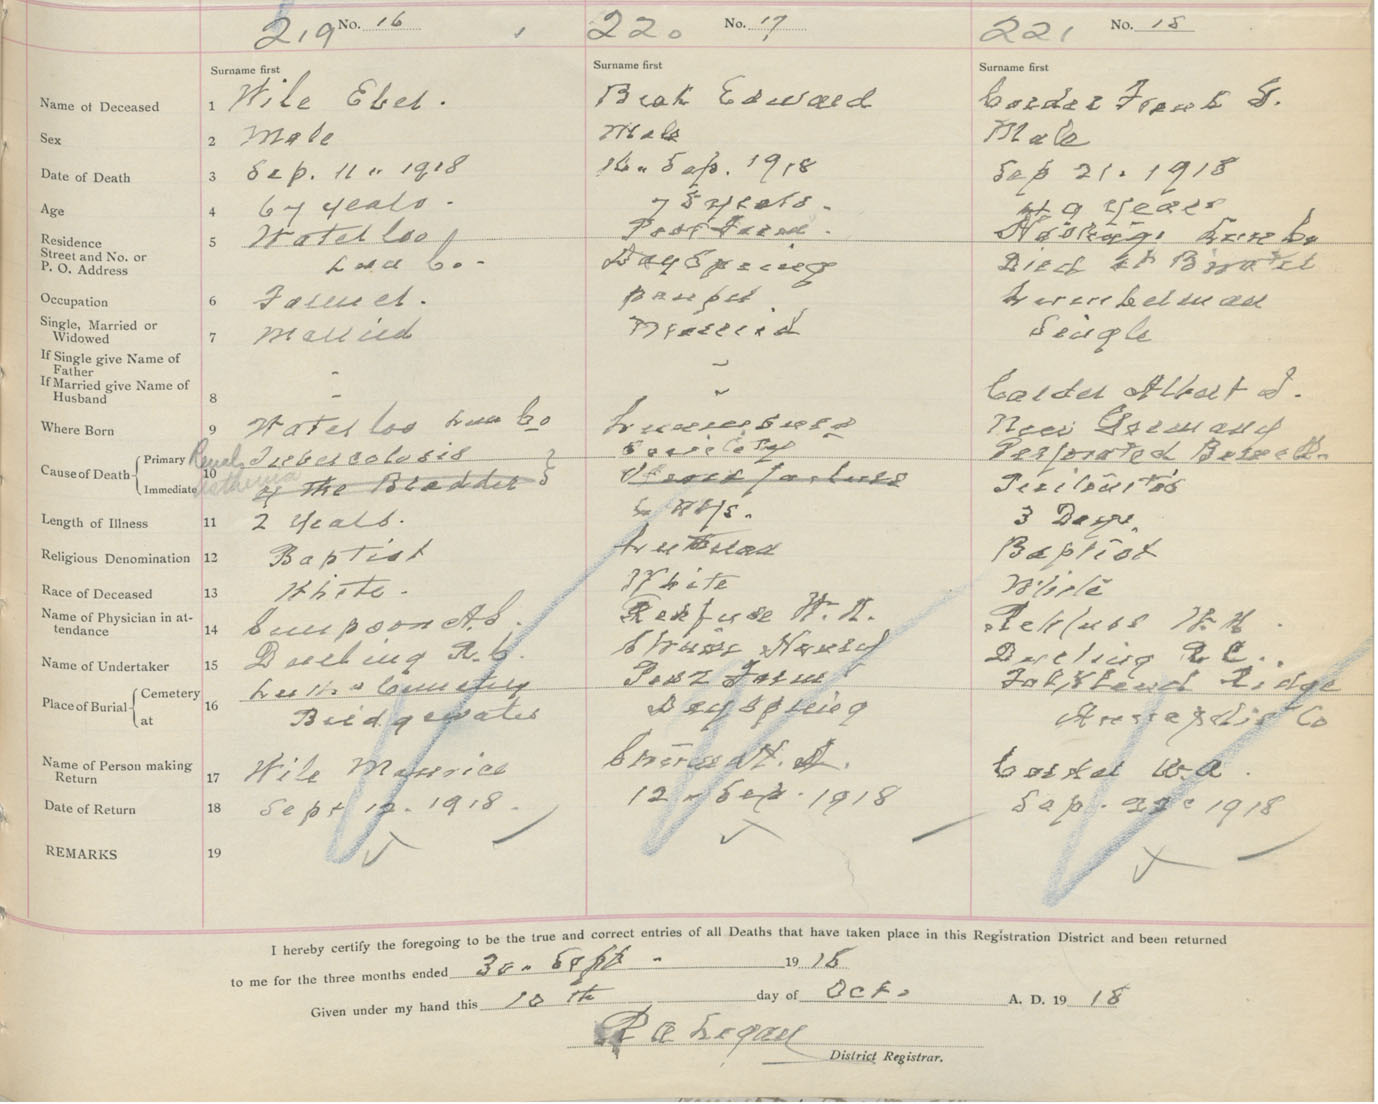 219 No. 16
220 No. 17
221 No. 18
Surname first Surname first Surname first
Name of Deceased 1 Wile Eber. Beak Edward Corder Frank S.
Sex 2 Male Male Male
Date of Death 3 Sep. 11" 1918 Sep. 1918 Sep 21. 1918
Age 4 67 years. 75 years. 49 years
Residence 5 Waterloo Poor Farm. Lun Co
Street and No. or
P. O. Address Lun Co. DaySpring Died at
Occupation 6 Farmer. pauper Lumberman
Single, Married or
Widowed 7 Married Married Single
If Single give Name of
Father
If Married give Name of
Husband 8 - Corder Albert
Where Born 9 Waterloo Lun Co Lunenburg New Germany
Cause of Death Primary Renal Tuberculosis Senility Perforated Bowel
10
Immediate asthenia of the Bladder Peritonitis
Length of Illness 11 2 years. 3 Days.
Religious Denomination 12 Baptist Lutheran Baptist
Race of Deceased 13 White. White White
Name of Physician in at-
tendance 14 Rehfuss W. N. Rehfuss W. N.
Name of Undertaker 15 Dowling R.C. Dowling R.C.
Place of Burial Cemetery Luth Cemetery Poor Farm Ridge
16
at Bridgewater DaySpring Annapolis Co
Name of Person making
Return 17 Wile Maurice Corder W.A.
Date of Return 18 Sept 12. 1918. 12 Sep. 1918 Sep. 22 1918
REMARKS 19
I hereby certify the foregoing to be the true and correct entries of all Deaths that have taken place in this Registration District and been returned
to me for the three months ended 30" Sept 1918
Given under my hand this 10th day of Oct. A. D. 1918
R A Logan
District Registrar.